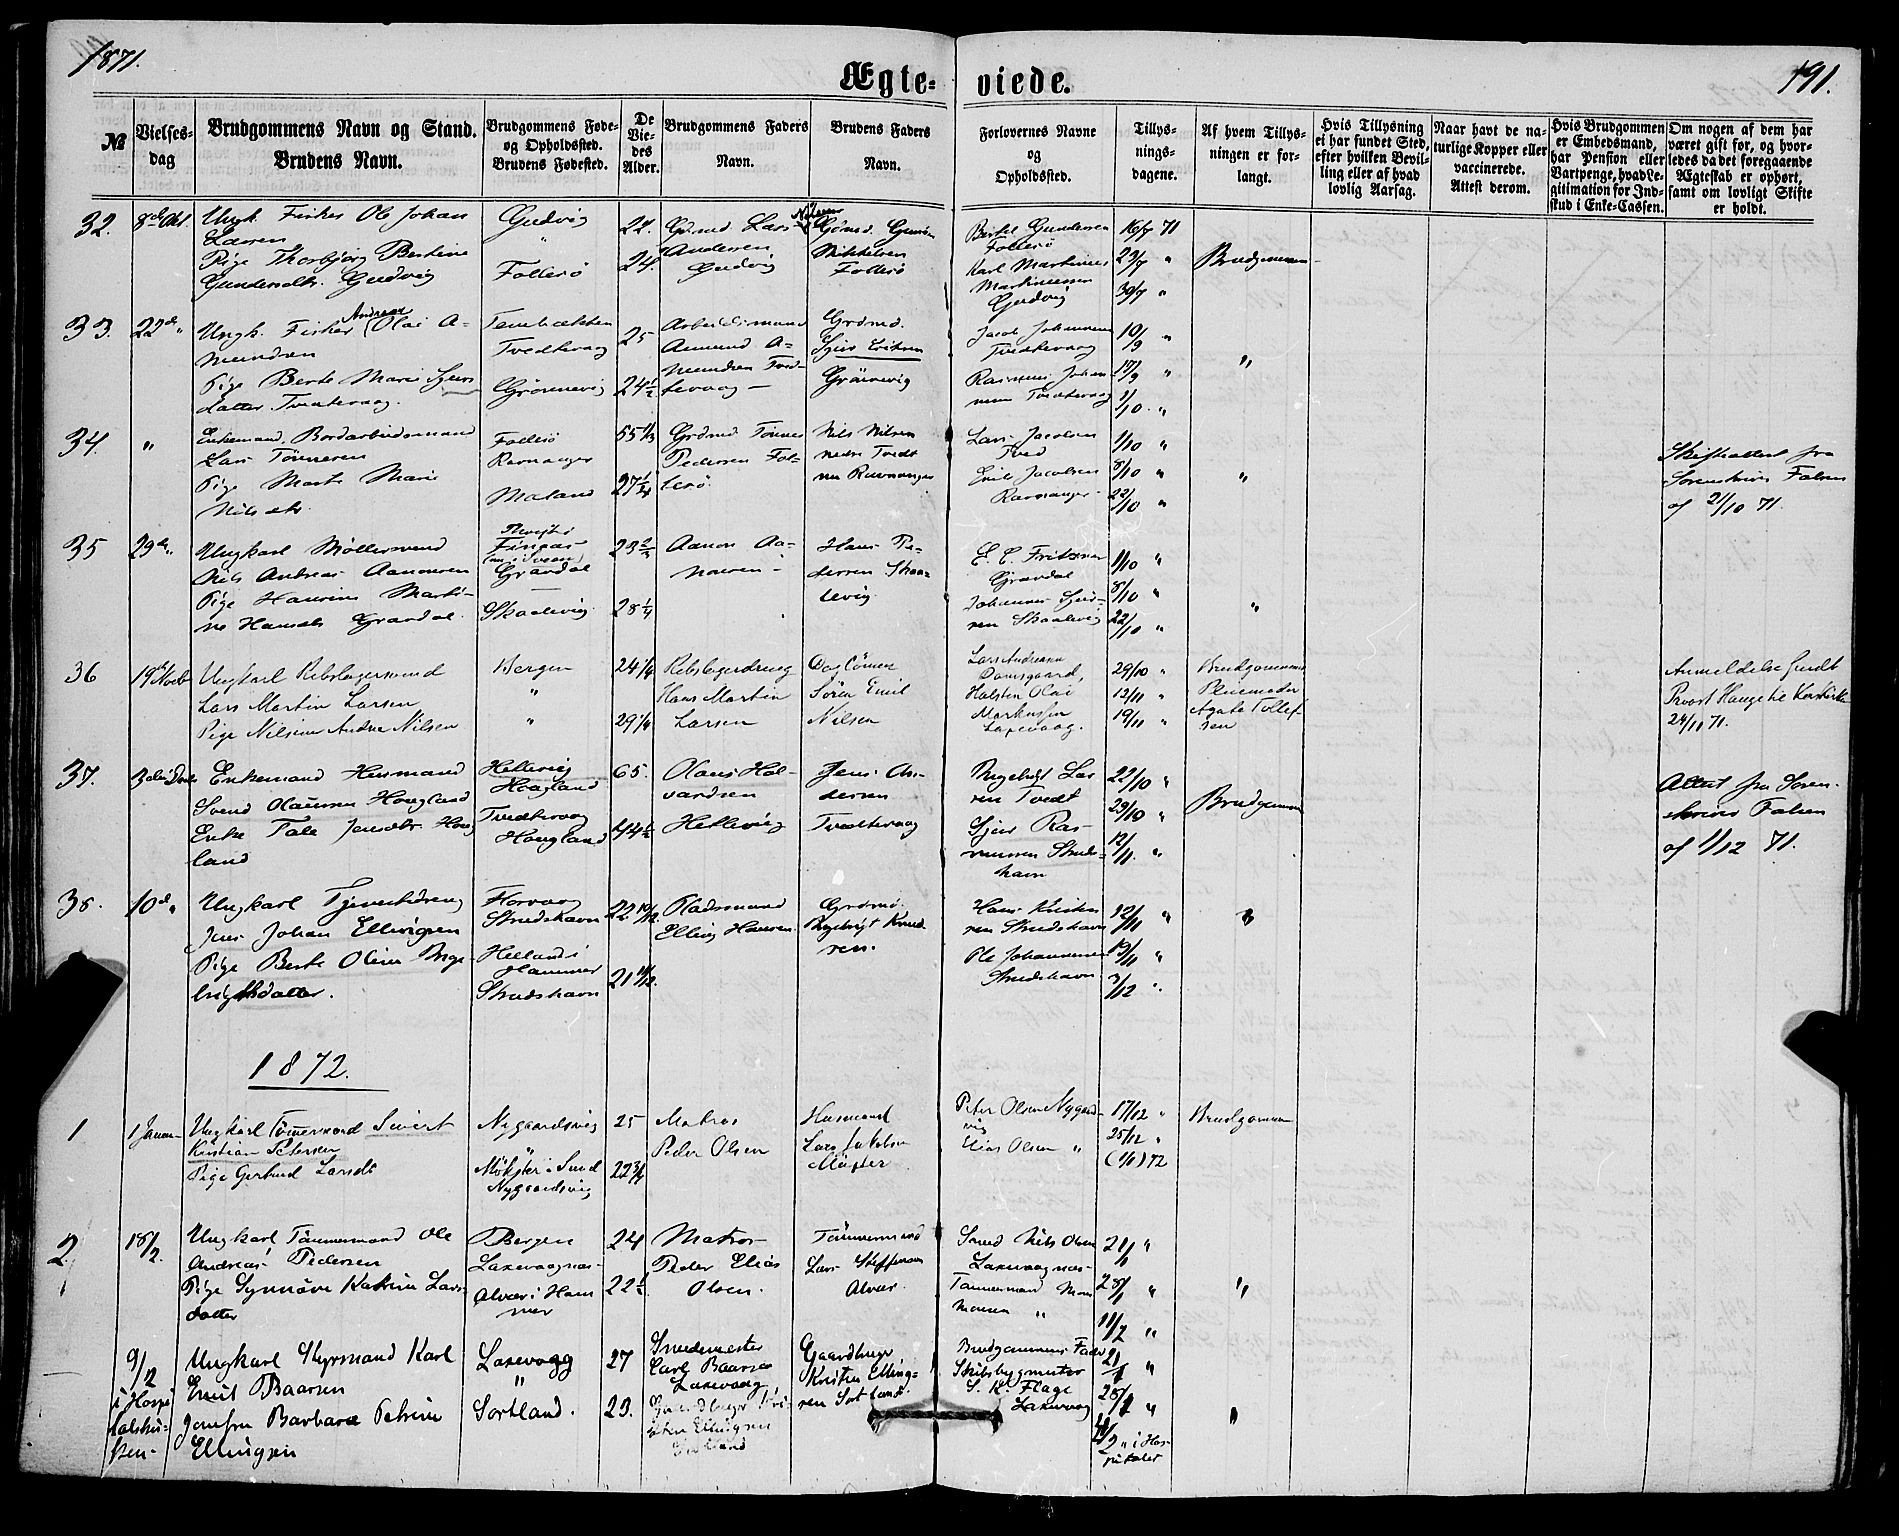 1871.
Ægte-viede.
191.
№
Vielses-dag
Brudgommens Navn og Stand.
Brudens Navn.
Brudgommens Føde-
og Opholdssted.
Brudens Fødested.
De
Vie-
des
Alder.
Brudgommens Faders
Navn.
Brudens Faders
Navn.
Forlovernes Navne
og
Opholdssted.
Tillys-
nings-
dagene.
Af hvem Tillys-
ningen er for-
langt.
Hvis Tillysning
ei har fundet Sted,
efter hvilken Bevil-
ling eller af hvad
lovlig Aarsag.
Naar havt de na-
turlige Kopper eller
vaccinerede.
Attest derom.
Hvis Brudgommen
er Embedsmand,
har Pension eller
Vartpenge, hvad Le-
gitimation for Ind-
skud i Enke-Cassen.
Om nogen af dem har
været gift før, og hvor-
ledes da det foregaaende
Ægteskab er ophørt,
samt om lovligt Skifte
er holdt.
32.
Ungk. Fisker Ole Johan
Larsen
Pige Thorbjørg Bertine
Gundersdtr. Gudvig
Gudvig
"
Follesø
22.
24.
Grdmd Lars
Andersen
Gudvig
Mikkelsen
Follesø
Gundersen
Follesø
Karl Martinus
Martinussen
Gudvig
16/7 71
23/7 "
30/7 "
Brudgommen
33.
22de "
Ungk. Fisker Olai A-
Andreas
mundsen
Pige Berte Marie Sjurs
datter Tvedtevaag.
Tvedtevaag
Grønnevig
25
24 1/2
Arbeidsmand
Amund A-
mundsen Tved-
tevaag
Grdmd.
Sjur Eriksen
Grønnevig
Jacob Johannesen
Tvedtevaag
Rasmus Johan
nesen Tvedtevaag
10/9 "
17/9 "
1/10 "
"
34.
"
Enkemand, Bordarbeidsmand
Lars Tønnesen
Pige Marte Marie
Nilsdtr.
Follesø
Ravnanger
Mæland
55 1/3
27 1/4
Grdmd Tønnes
Pedersen Fol-
lesø.
Nils Nilsen
Lars Jacobsen
Tved
Erik Jacobsen
Ravnanger
1/10 "
8/10 "
22/10 "
"
Skifteattest fra
Sorenskriver Falsen
af 21/10 71.
35
29de "
Ungkarl Møllersvend
Nils Andreas Aanonsen
Pige Hansine Marti-
ne Hansdtr Gravdal.
Gravdal
Skaalevig
23 2/3
28 1/4
Aanon Aa-
nonsen
Hans Pe-
dersen Skaa-
levig
E. C. Fritzner
Gravdal
Johannes
Skaalevig
1/10 "
8/10 "
22/10 "
"
36
19de Novb
Ungkarl Rebslagersvend
Lars Martin Larsen
Pige Nilsine Andrea Nilsen
Bergen
"
"
24 1/4
29 1/4
Rebslagerdreng
Hans Martin
Larsen
Søren Emil
Nilsen
Lars Andreasen
Damsgaard,
Halsten Olai
Markussen
Laxevaag.
29/10 "
12/11 "
19/11 "
Brudgommens
Pleiemoder
Agate Tollef-
sen
Anmeldelse sendt
Provst Hauge til Korskirken
24/11 71.
37.
3die Decbr
Enkemand Husmand
Svend Olaussen Hougland
Enke Tale Jensdtr Houg
land
Hellevig
Hougland
Tvedtevaag
Hougland
65.
44 1/2
Olaus Hal-
vardsen
Hellevig
Jens An-
dersen
Tvedtevaag
Ingebrigt Lar
sen Tvedt
Sjur Ras-
mussen Struds-
havn
22/10 "
29/10 "
12/11 "
Brudgommen
Attest fra Soren-
skriver Falsen
af 1/12 71.
38.
10de "
Ungkarl Tjenestedreng
Jens Johan Ellingsen
Pige Berte Oline Inge-
brigtsdatter.
Florvaag
Strudshavn
Helland i
Hammer
Strudshavn
22 10/12
21 11/12
Pladsmand
Elling Hansen.
Grdmd.
Ingebrigt Knud
sen.
Hans Kristen
sen Strudshavn
Ole Johannesen
Strudshavn
12/11 "
19/11 "
3/12 "
"
1872.
1
1 Januar
Ungkarl Tømmermand Sivert
Kristian Petersen
Pige Gertrud Larsdt
Nygaardsvig
"
Møkster i Sund
Nygaardsvig
25
22 3/4
Matros
Peder Olsen
Husmand
Lars Jakobsen
Møgster
Peter Olsen Nygaards-
vig
Elias Olsen "
17/12 "
25/12 "
(1/1) 72
Brudgommen
2.
18/2.
Ungkarl Tømmermand Ole
Andreas Pedersen
Pige Synnøve Katrine Lars
datter
Bergen
Laxevaagnæs
Alver i Ham
mer
24
22 1/2
Matros
Peder Elias
Olsen.
Tømmermand
Lars Steffensen
Alver
Smed Nils Olsen
Laxevaagnæs
Tømmermand Mons
Monsen "
21/1 "
28/1 "
11/2 "
"
9/2
i Hospi
talskir-
ken-
Ungkarl Styrmand Karl
Emil Baarsen
Jomfru Barbara Petrine
Ellingsen
Laxevaag
"
Sortland.
27
23.
Smedemester
Carl Baarsen
Laxevaag
Gaardbruger Kri
sten Ellingsen
Sortland
Gaardbruger
Kristen Elling-
sen Sortland.
Brudgommens Fader
Skibsbygmester
S. K. Flage
Laxevaag
21/1 "
28/1 "
4/2 " i Hos-
pitalet
"